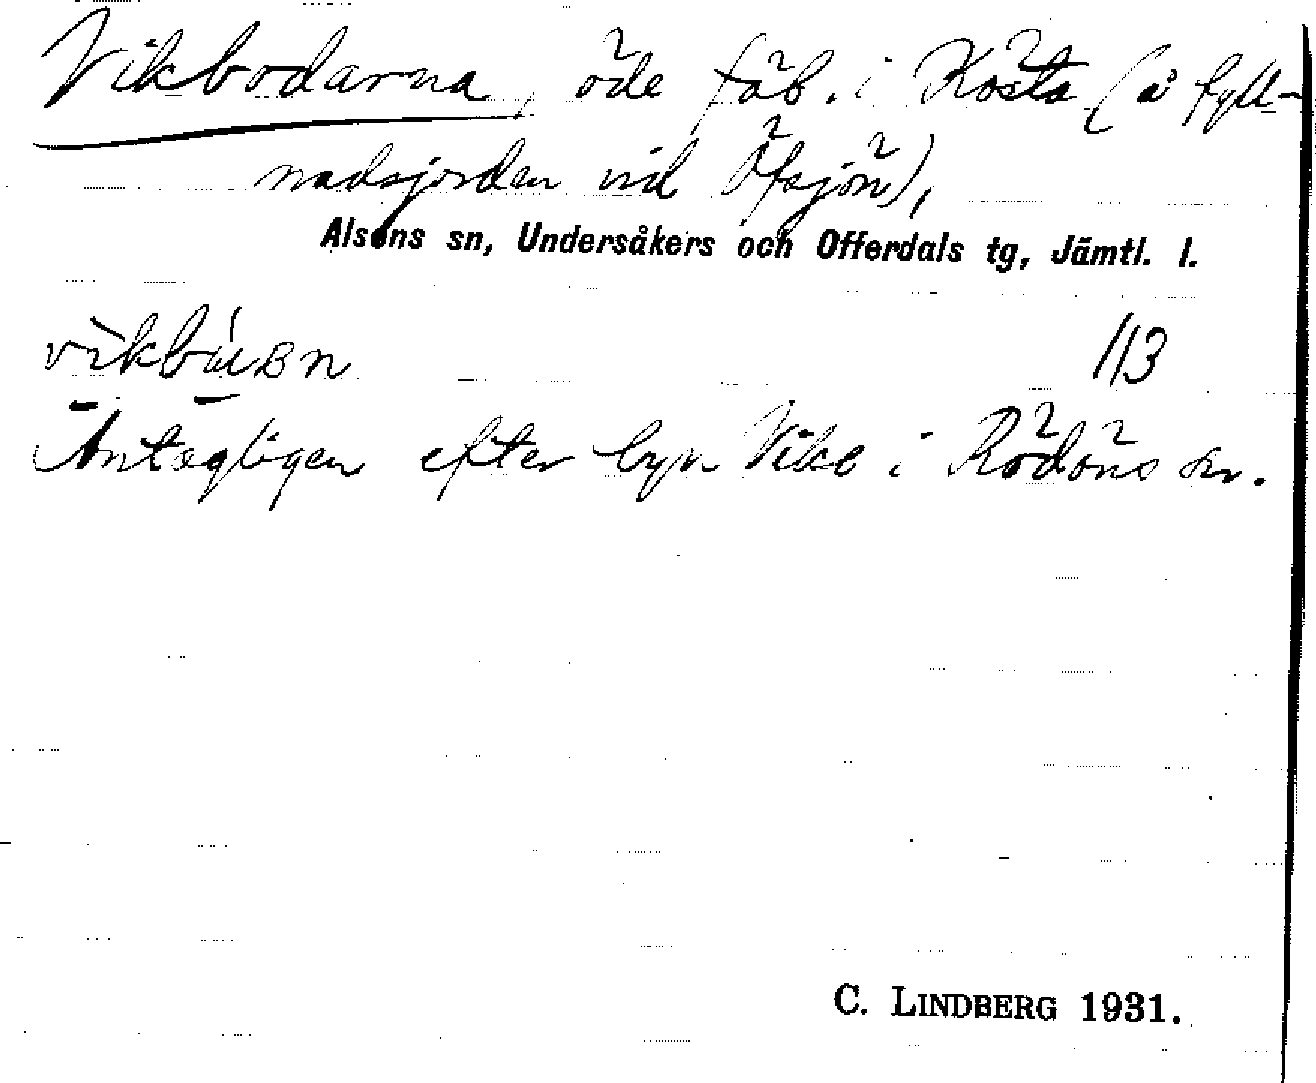 Vikbodarna, öde fäb. i Kösta (å fyll-
nadsjorden vid Öfsjön),
Alsens sn, Undersåkers och Offerdals tg, Jämtl. l.
113
Antagligen efter byn Vike i Rödöns sn.
C. LINDBERG 1931.